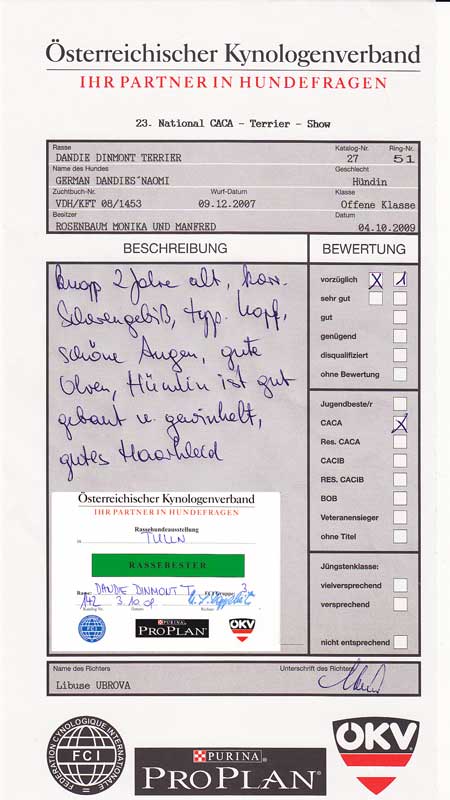 Österreichischer Kynologenverband
IHR PARTNER IN HUNDEFRAGEN
23. National CACA - Terrier - Show
Rasse Katalog-Nr. Ring-Nr.
DANDIE DINMONT TERRIER 27 51
Name des Hundes Geschlecht
GERMAN DANDIES´NAOMI Hündin
Zuchtbuch-Nr. Wurf-Datum Klasse
VDH/KFT 08/1453 09.12.2007 Offene Klasse
Besitzer Datum
ROSENBAUM MONIKA UND MANFRED 04.10.2009
BESCHREIBUNG
Knapp 2 Jahre alt, korr.
Scherengebiß, typ. Kopf,
schöne Augen, gute
Ohren, Hündin ist gut
gebaut u. gewinkelt,
gutes Haarkleid
BEWERTUNG
vorzüglich X 1
sehr gut
gut
genügend
disqualifiziert
ohne Bewertung
Jugendbeste/r
CACA X
Res. CACA
CACIB
RES. CACIB
BOB
Veteranensieger
ohne Titel
Jüngstenklasse:
vielversprechend
versprechend
nicht entsprechend
Österreichischer Kynologenverband
IHR PARTNER IN HUNDEFRAGEN
Rassehundeausstellung
in TULLN
RASSEBESTER
Rasse: DANDIE DINMONT T. FCI Gruppe: 3
142 3.10.09
Katalog Nr. Datum Richter
FCI
PURINA
PRO PLAN
ÖKV
Name des Richters Unterschrift des Richters
Libuse UBROVA
FEDERATION CYNOLOGIQUE INTERNATIONALE
FCI
PURINA
PRO PLAN
ÖKV